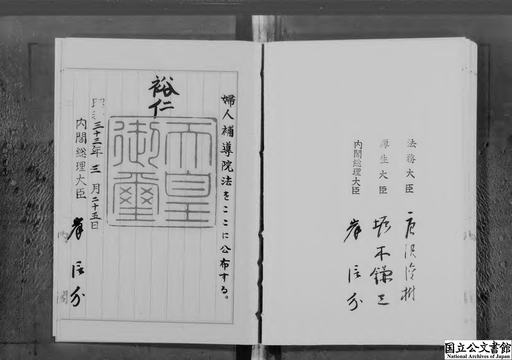 婦人補導院法をここに公布する。
裕仁
天皇
御璽
昭和三十三年三月二十五日
内閣総理大臣 岸信介
法務大臣 唐沢俊樹
厚生大臣 堀木鎌三
内閣総理大臣 岸信介
国立公文書館
National Archives of Japan